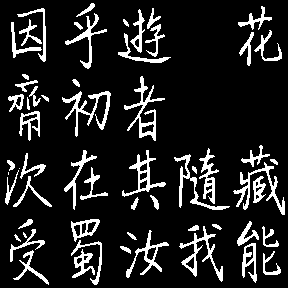 因乎遊 花
齊初者
次在其隨藏
受蜀汝我能